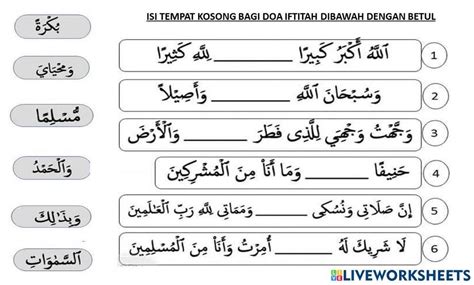 ISI TEMPAT KOSONG BAGI DOA IFTITAH DIBAWAH DENGAN BETUL
بُكْرَةً
وَمَحْيَايَ
مُّسْلِمًا
وَالْحَمْدُ
وَبِذَٰلِكَ
ٱلسَّمَٰوَاتِ
اَللَّهُ أَكْبَرُ كَبِيرًا ________ لِلَّهِ كَثِيرًا 1
وَسُبْحَانَ ٱللَّهِ ________ وَأَصِيْلاً 2
وَجَّهْتُ وَجْهِيَ لِلَّذِى فَطَرَ ________ وَٱلْأَرْضَ 3
حَنِيفًا ________ وَمَا أَنَا۠ مِنَ ٱلْمُشْرِكِينَ 4
إِنَّ صَلَاتِى وَنُسُكِى ________ وَمَمَاتِى لِلَّهِ رَبِّ ٱلْعَالَمِينَ 5
لَا شَرِيكَ لَهُ ________ أُمِرْتُ وَأَنَا۠ مِنَ ٱلْمُسْلِمِينَ 6
LIVEWORKSHEETS